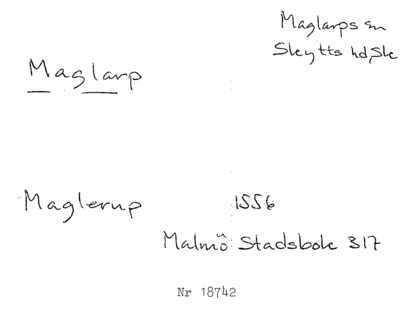 Maglarps sn
Skytts hd, Sk
Maglarp
Maglerup 1556
Malmö Stadsbok 317
Nr 18742